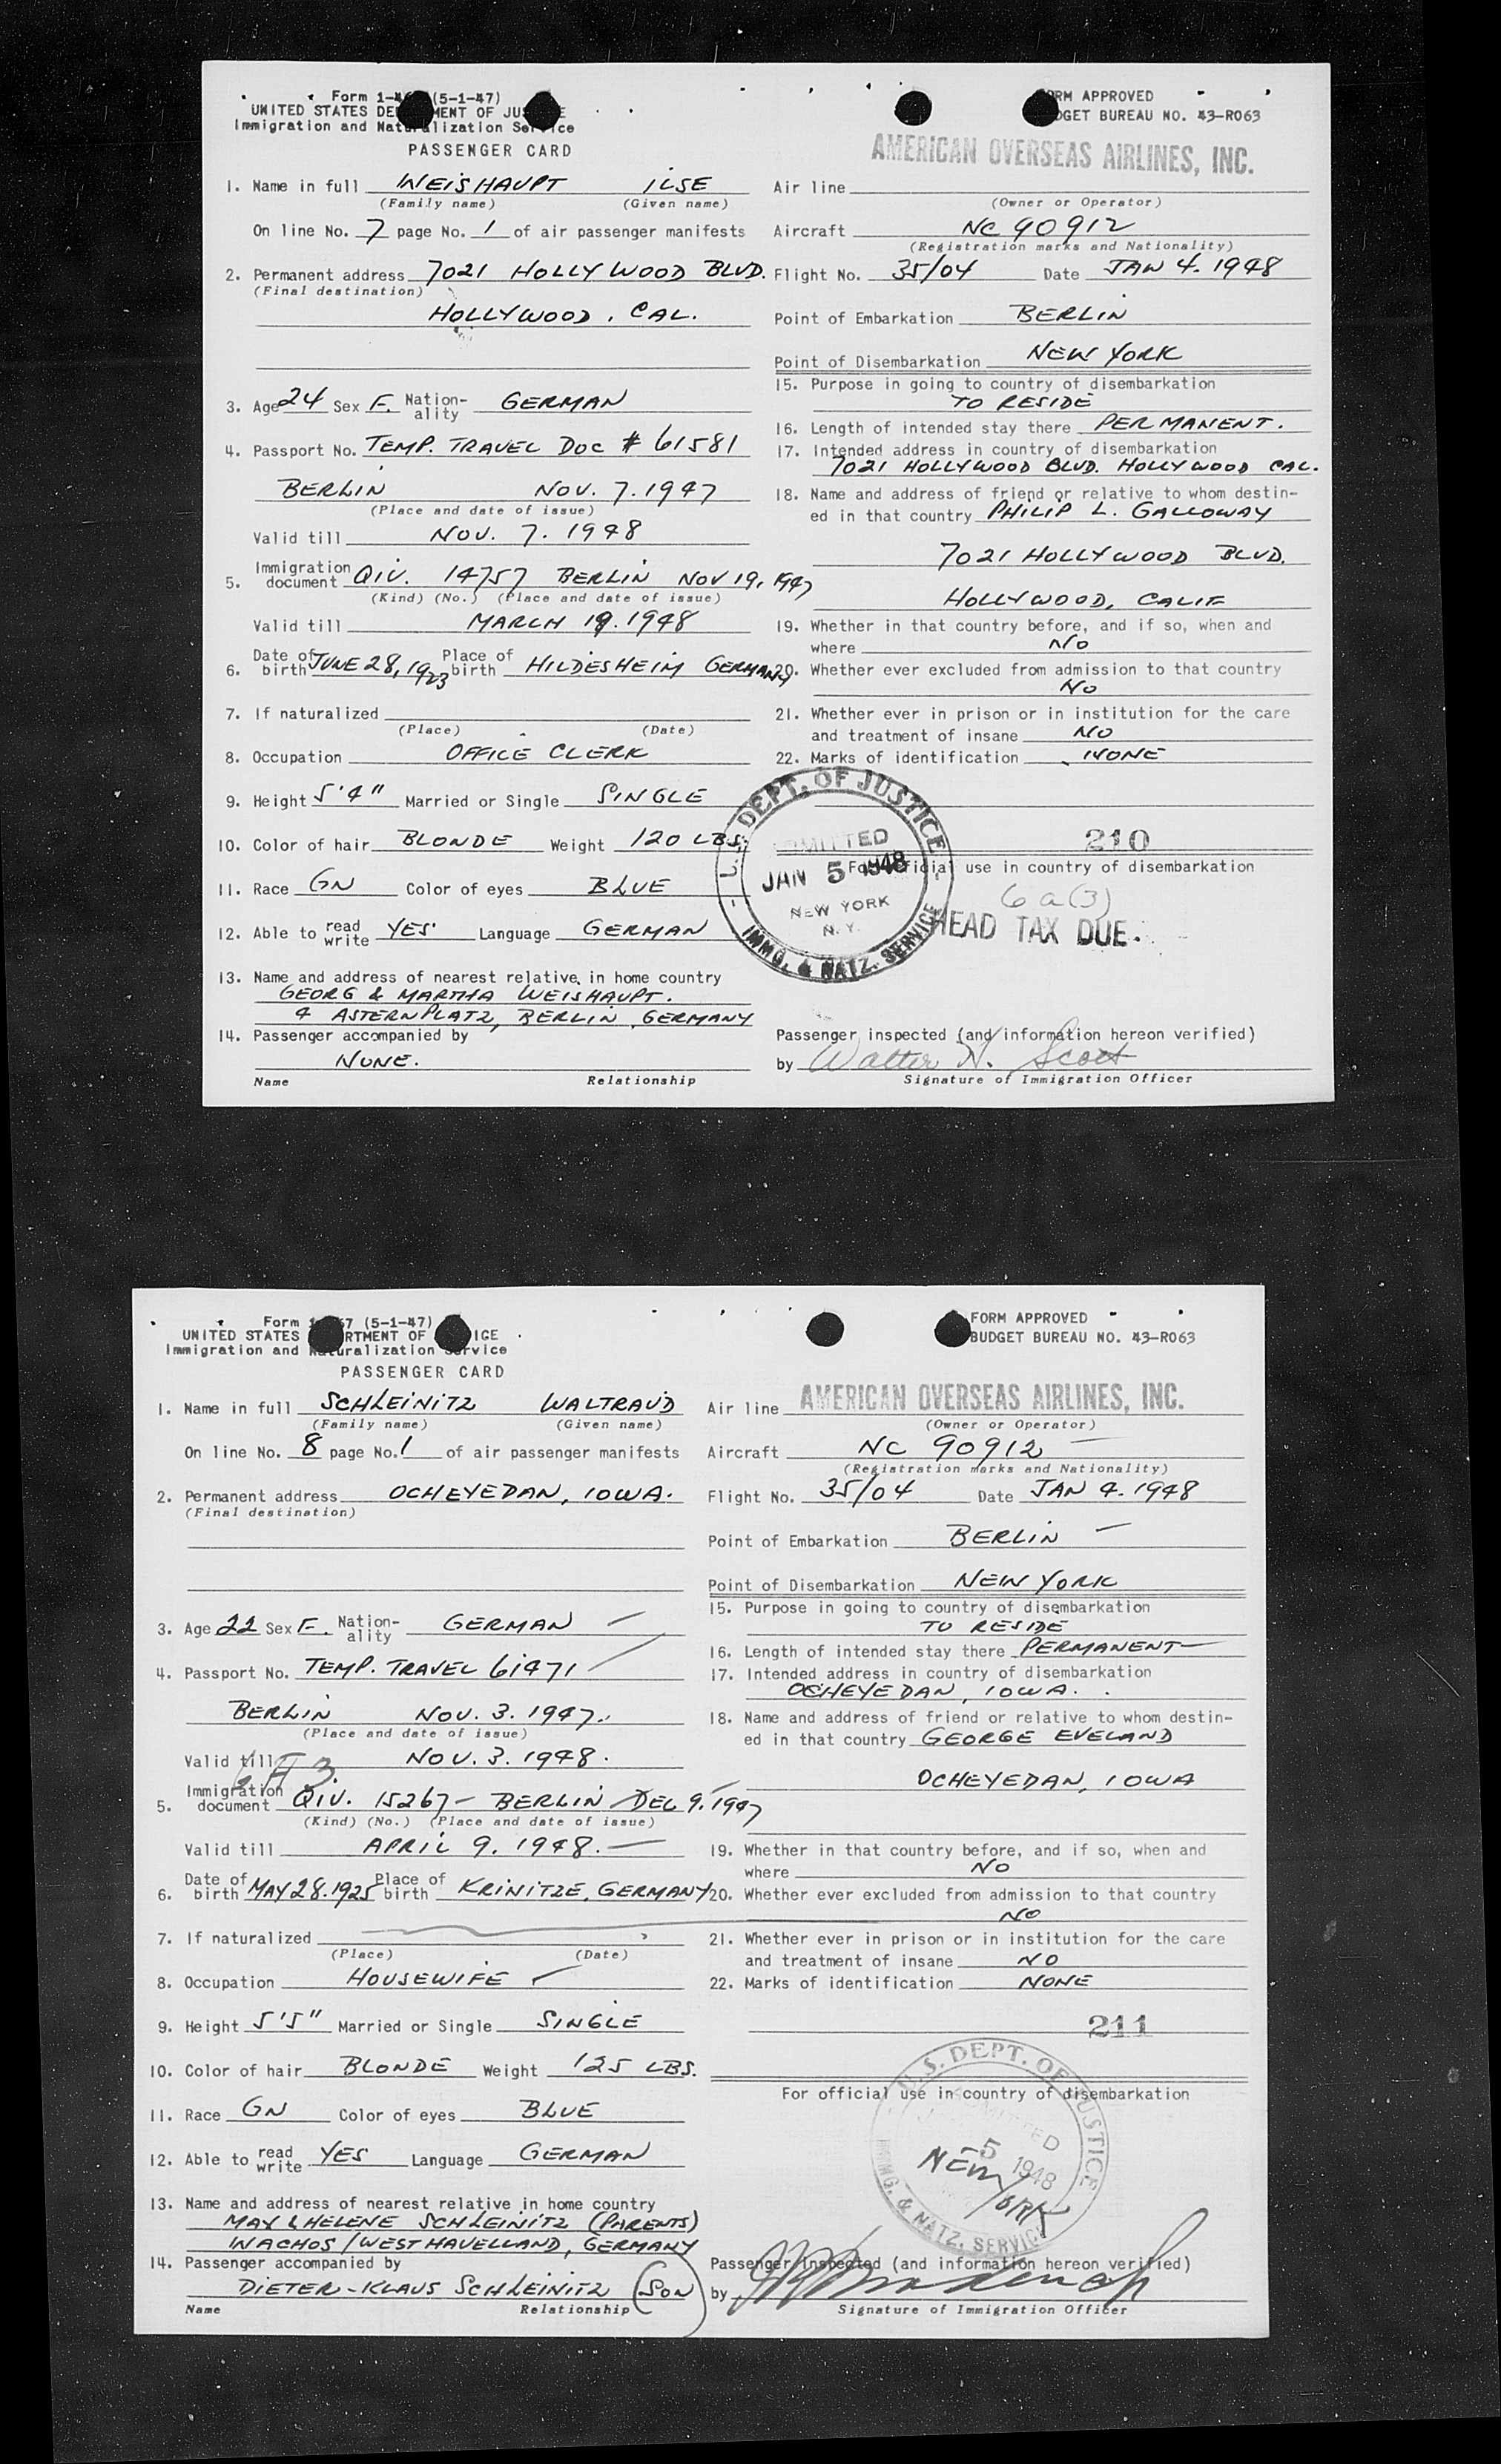 Form 1- (5-1-47)
UNITED STATES DEPARTMENT OF JUSTICE
Immigration and Naturalization Service
PASSENGER CARD
FORM APPROVED
BUDGET BUREAU NO. 43-R063
AMERICAN OVERSEAS AIRLINES, INC.
1. Name in full WEISHAUPT ILSE
(Family name) (Given name)
On line No. 7 page No. 1 of air passenger manifests
2. Permanent address 7021 HOLLYWOOD BLVD.
(Final destination)
HOLLYWOOD, CAL.
3. Age 24 Sex F. Nation-ality GERMAN
4. Passport No. TEMP. TRAVEL DOC # 61581
BERLIN NOV. 7. 1947
(Place and date of issue)
Valid till NOV. 7. 1948
5. Immigration document QIV. 14757 BERLIN NOV 19, 1947
(Kind) (No.) (Place and date of issue)
Valid till MARCH 19. 1948
6. Date of birth JUNE 28, 1923 Place of birth HILDESHEIM GERMANY
7. If naturalized
(Place) (Date)
8. Occupation OFFICE CLERK
9. Height 5'4" Married or Single SINGLE
10. Color of hair BLONDE Weight 120 LBS.
11. Race GN Color of eyes BLUE
12. Able to read write YES Language GERMAN
13. Name and address of nearest relative in home country
GEORG & MARTHA WEISHAUPT.
4 ASTERNPLATZ, BERLIN, GERMANY
14. Passenger accompanied by
NONE.
Name Relationship
Air line
(Owner or Operator)
Aircraft NC 90912
(Registration marks and Nationality)
Flight No. 35/04 Date JAN 4. 1948
Point of Embarkation BERLIN
Point of Disembarkation NEW YORK
15. Purpose in going to country of disembarkation
TO RESIDE
16. Length of intended stay there PERMANENT.
17. Intended address in country of disembarkation
7021 HOLLYWOOD BLVD. HOLLYWOOD CAL.
18. Name and address of friend or relative to whom destin-
ed in that country PHILIP L. GALLOWAY
7021 HOLLYWOOD BLVD.
HOLLYWOOD, CALIF
19. Whether in that country before, and if so, when and
where NO
20. Whether ever excluded from admission to that country
NO
21. Whether ever in prison or in institution for the care
and treatment of insane NO
22. Marks of identification NONE
210
For official use in country of disembarkation
U.S. DEPT. OF JUSTICE
ADMITTED
JAN 5 1948
NEW YORK
N.Y.
IMMG. & NATZ. SERVICE
6a(3)
HEAD TAX DUE.
Passenger inspected (and information hereon verified)
by Walter N. Scott
Signature of Immigration Officer
Form 67 (5-1-47)
UNITED STATES DEPARTMENT OF JUSTICE
Immigration and Naturalization Service
PASSENGER CARD
FORM APPROVED
BUDGET BUREAU NO. 43-R063
1. Name in full SCHLEINITZ WALTRAUD
(Family name) (Given name)
On line No. 8 page No. 1 of air passenger manifests
2. Permanent address OCHEYEDAN, IOWA.
(Final destination)
3. Age 22 Sex F. Nation-ality GERMAN
4. Passport No. TEMP. TRAVEL 61471
BERLIN NOV. 3. 1947.
(Place and date of issue)
Valid till NOV. 3. 1948.
5. Immigration document QIV. 15267 - BERLIN - DEC 9. 1947
(Kind) (No.) (Place and date of issue)
Valid till APRIL 9. 1948.
6. Date of birth MAY 28. 1925 Place of birth KRINITZE, GERMANY
7. If naturalized
(Place) (Date)
8. Occupation HOUSEWIFE
9. Height 5'5" Married or Single SINGLE
10. Color of hair BLONDE Weight 125 LBS.
11. Race GN Color of eyes BLUE
12. Able to read write YES Language GERMAN
13. Name and address of nearest relative in home country
MAX & HELENE SCHLEINITZ (PARENTS)
WACHOS / WESTHAVELLAND, GERMANY
14. Passenger accompanied by
DIETER-KLAUS SCHLEINITZ (SON)
Name Relationship
Air line AMERICAN OVERSEAS AIRLINES, INC.
(Owner or Operator)
Aircraft NC 90912
(Registration marks and Nationality)
Flight No. 35/04 Date JAN 4. 1948
Point of Embarkation BERLIN
Point of Disembarkation NEW YORK
15. Purpose in going to country of disembarkation
TO RESIDE
16. Length of intended stay there PERMANENT
17. Intended address in country of disembarkation
OCHEYEDAN, IOWA.
18. Name and address of friend or relative to whom destin-
ed in that country GEORGE EVELAND
OCHEYEDAN, IOWA
19. Whether in that country before, and if so, when and
where NO
20. Whether ever excluded from admission to that country
NO
21. Whether ever in prison or in institution for the care
and treatment of insane NO
22. Marks of identification NONE
211
For official use in country of disembarkation
U.S. DEPT. OF JUSTICE
ADMITTED
5 1948
NEW YORK
IMMG. & NATZ. SERVICE
Passenger Inspected (and information hereon verified)
by
Signature of Immigration Officer